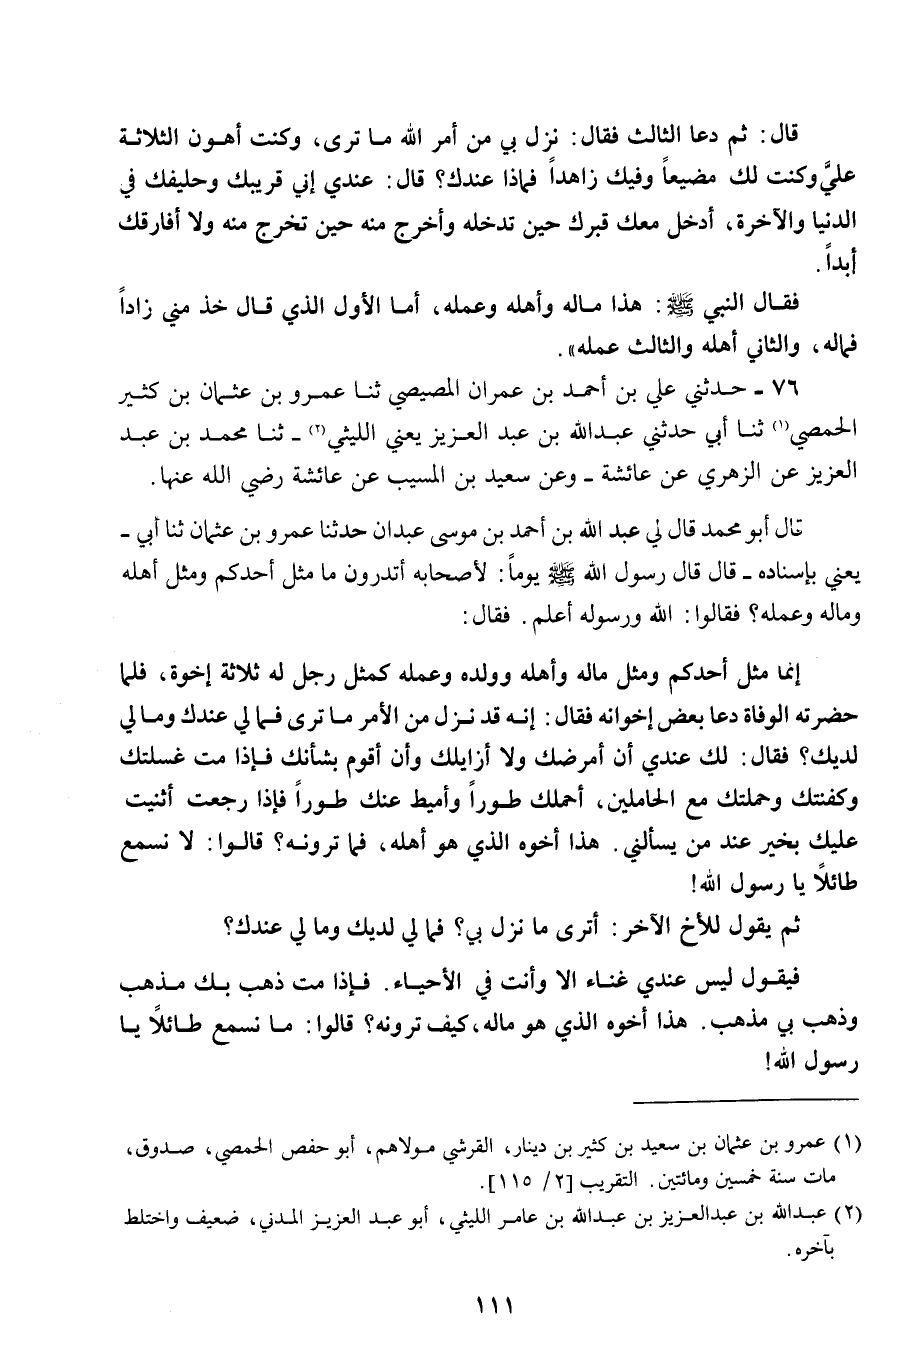 قال: ثم دعا الثالث فقال: نزل بي من أمر الله ما ترى، وكنت أهون الثلاثة
عليَّ وكنت لك مضيعاً وفيك زاهداً فماذا عندك؟ قال: عندي إني قريبك وحليفك في
الدنيا والآخرة، أدخل معك قبرك حين تدخله وأخرج منه حين تخرج منه ولا أفارقك
أبداً.
فقال النبي ﷺ: هذا ماله وأهله وعمله، أما الأول الذي قال خذ مني زاداً
فماله، والثاني أهله والثالث عمله».
٧٦ - حدثني علي بن أحمد بن عمران المصيصي ثنا عمرو بن عثمان بن كثير
الحمصي(١) ثنا أبي حدثني عبدالله بن عبد العزيز يعني الليثي(٢) - ثنا محمد بن عبد
العزيز عن الزهري عن عائشة - وعن سعيد بن المسيب عن عائشة رضي الله عنها.
قال أبو محمد قال لي عبد الله بن أحمد بن موسى عبدان حدثنا عمرو بن عثمان ثنا أبي -
يعني بإسناده - قال قال رسول الله ﷺ يوماً: لأصحابه أتدرون ما مثل أحدكم ومثل أهله
وماله وعمله؟ فقالوا: الله ورسوله أعلم. فقال:
إنما مثل أحدكم ومثل ماله وأهله وولده وعمله كمثل رجل له ثلاثة إخوة، فلما
حضرته الوفاة دعا بعض إخوانه فقال: إنه قد نزل من الأمر ما ترى فما لي عندك وما لي
لديك؟ فقال: لك عندي أن أمرضك ولا أزايلك وأن أقوم بشأنك فإذا مت غسلتك
وكفنتك وحملتك مع الحاملين، أحملك طوراً وأميط عنك طوراً فإذا رجعت أثنيت
عليك بخير عند من يسألني. هذا أخوه الذي هو أهله، فما ترونه؟ قالوا: لا نسمع
طائلاً يا رسول الله!
ثم يقول للأخ الآخر: أترى ما نزل بي؟ فما لي لديك وما لي عندك؟
فيقول ليس عندي غناء الا وأنت في الأحياء. فإذا مت ذهب بك مذهب
وذهب بي مذهب. هذا أخوه الذي هو ماله، كيف ترونه؟ قالوا: ما نسمع طائلاً يا
رسول الله!
(١) عمرو بن عثمان بن سعيد بن كثير بن دينار، القرشي مولاهم، أبو حفص الحمصي، صدوق،
مات سنة خمسين ومائتين. التقريب [٢/ ١١٥].
(٢) عبدالله بن عبدالعزيز بن عبدالله بن عامر الليثي، أبو عبد العزيز المدني، ضعيف واختلط
بآخره.
١١١